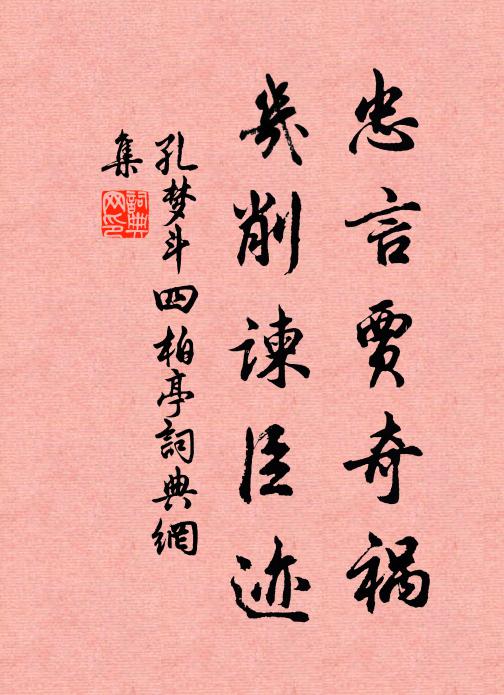 忠言贾奇祸
几削谏臣迹
孔梦斗四柏亭词典網
集
詞典网印